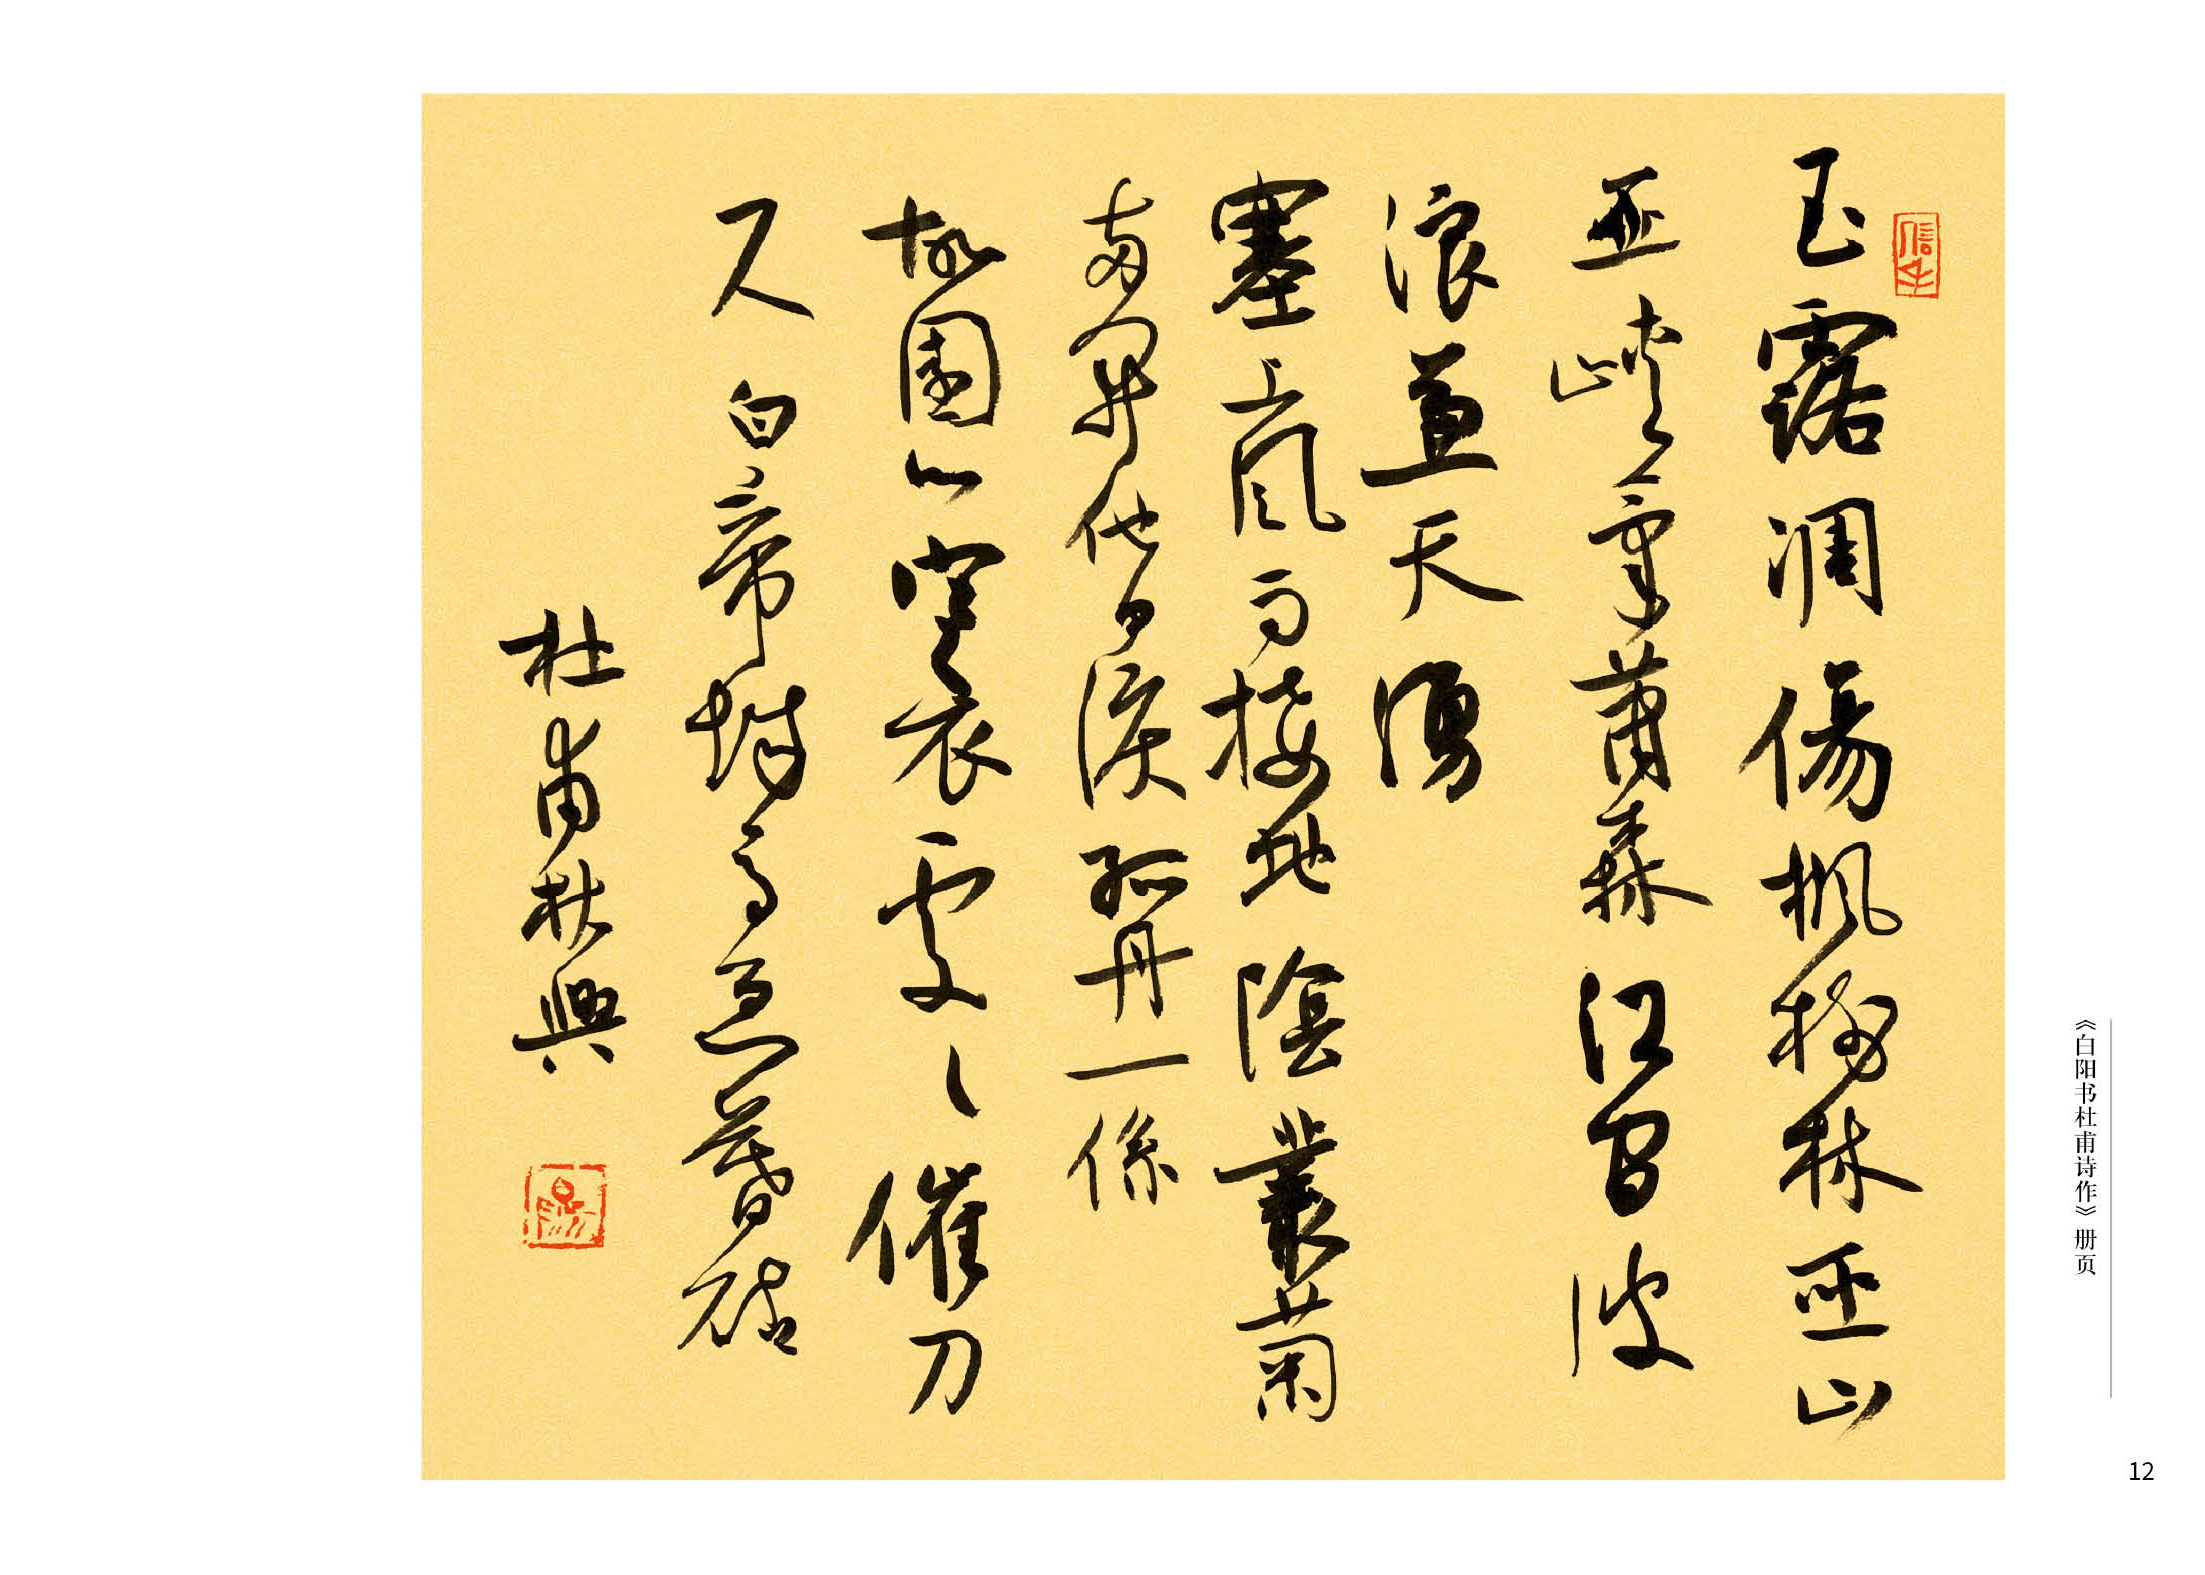 玉露凋傷楓樹林巫山
巫峽氣蕭森江間波
浪兼天湧
塞上風雲接地陰叢菊
兩開他日淚孤舟一係
故園心寒衣處々催刀
尺白帝城高急暮砧
杜甫秋興
白陽
《白阳书杜甫诗作》册页
12